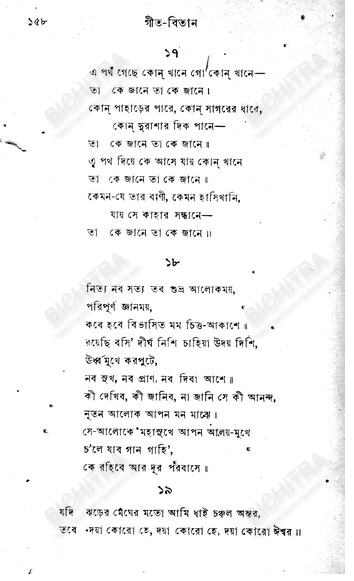 ১৫৮
গীত-বিতান
১৭
এ পথ গেছে কোন্ খানে গো কোন্ খানে—
তা কে জানে তা কে জানে।
কোন্ পাহাড়ের পারে, কোন্ সাগরের ধারে,
কোন্ দুরাশার দিক পানে—
তা কে জানে তা কে জানে॥
এ পথ দিয়ে কে আসে যায় কোন্ খানে
তা কে জানে তা কে জানে।
কেমন-যে তার বাণী, কেমন হাসিখানি,
যায় সে কাহার সন্ধানে—
তা কে জানে তা কে জানে॥
১৮
নিত্য নব সত্য তব শুভ্র আলোকময়,
পরিপূর্ণ জ্ঞানময়,
কবে হবে বিভাসিত মম চিত্ত-আকাশে॥
রয়েছি বসি' দীর্ঘ নিশি চাহিয়া উদয় দিশি,
ঊর্ধ্বমুখে করপুটে,
নব সুখ, নব প্রাণ, নব দিবা আশে॥
কী দেখিব, কী জানিব, না জানি সে কী আনন্দ,
নূতন আলোক আপন মন মাঝে।
সে-আলোকে মহাসুখে আপন আলয়-মুখে
চ'লে যাব গান গাহি',
কে রহিবে আর দূর পরবাসে॥
১৯
যদি ঝড়ের মেঘের মতো আমি ধাই চঞ্চল অন্তর,
তবে দয়া কোরো হে, দয়া কোরো হে, দয়া কোরো ঈশ্বর॥
BICHITRA
BICHITRA
BICHITRA
BICHITRA
BICHITRA
BICHITRA